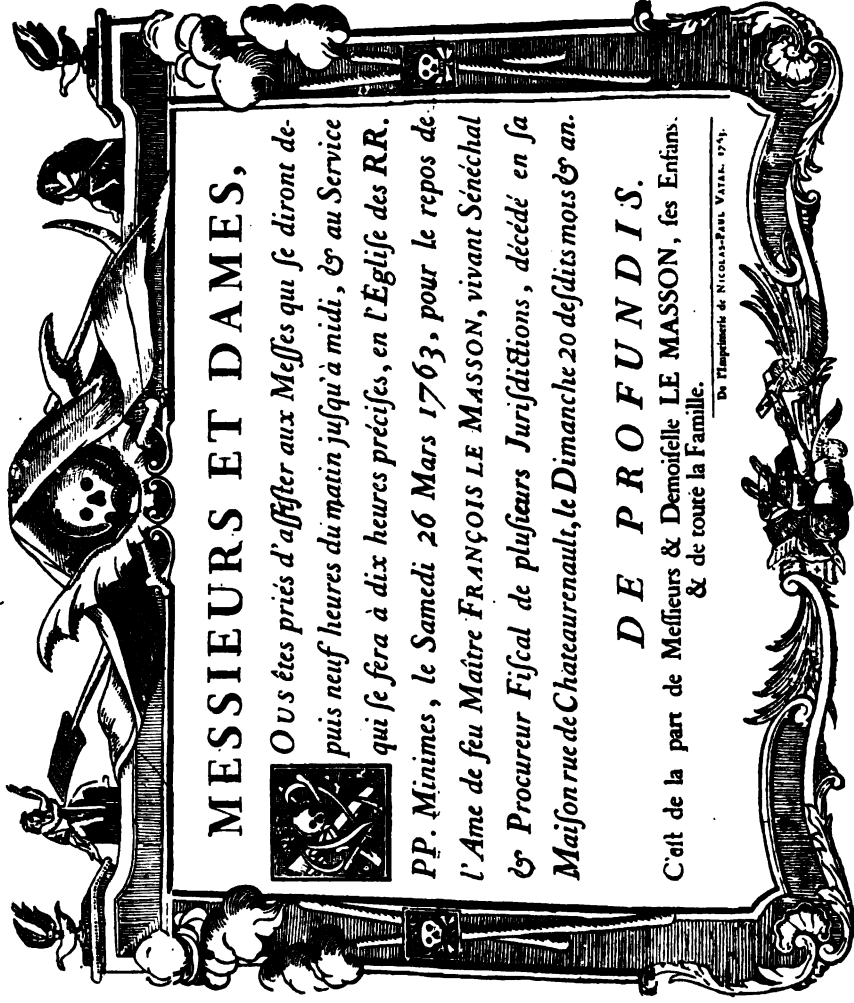 MESSIEURS ET DAMES,
OUS êtes priés d'aſſiſter aux Meſſes qui ſe diront de-
puis neuf heures du matin juſqu'à midi, & au Service
qui ſe fera à dix heures préciſes, en l'Egliſe des RR.
PP. Minimes, le Samedi 26 Mars 1763, pour le repos de
l'Ame de feu Maître FRANÇOIS LE MASSON, vivant Sénéchal
& Procureur Fiſcal de pluſieurs Juriſdictions, décédé en ſa
Maiſon rue de Chateaurenault, le Dimanche 20 deſdits mois & an.
DE PROFUNDIS.
C'eſt de la part de Meſſieurs & Demoiſelle LE MASSON, ſes Enfans.
& de toute la Famille.
De l'Imprimerie de NICOLAS-PAUL VATAR. 1763.